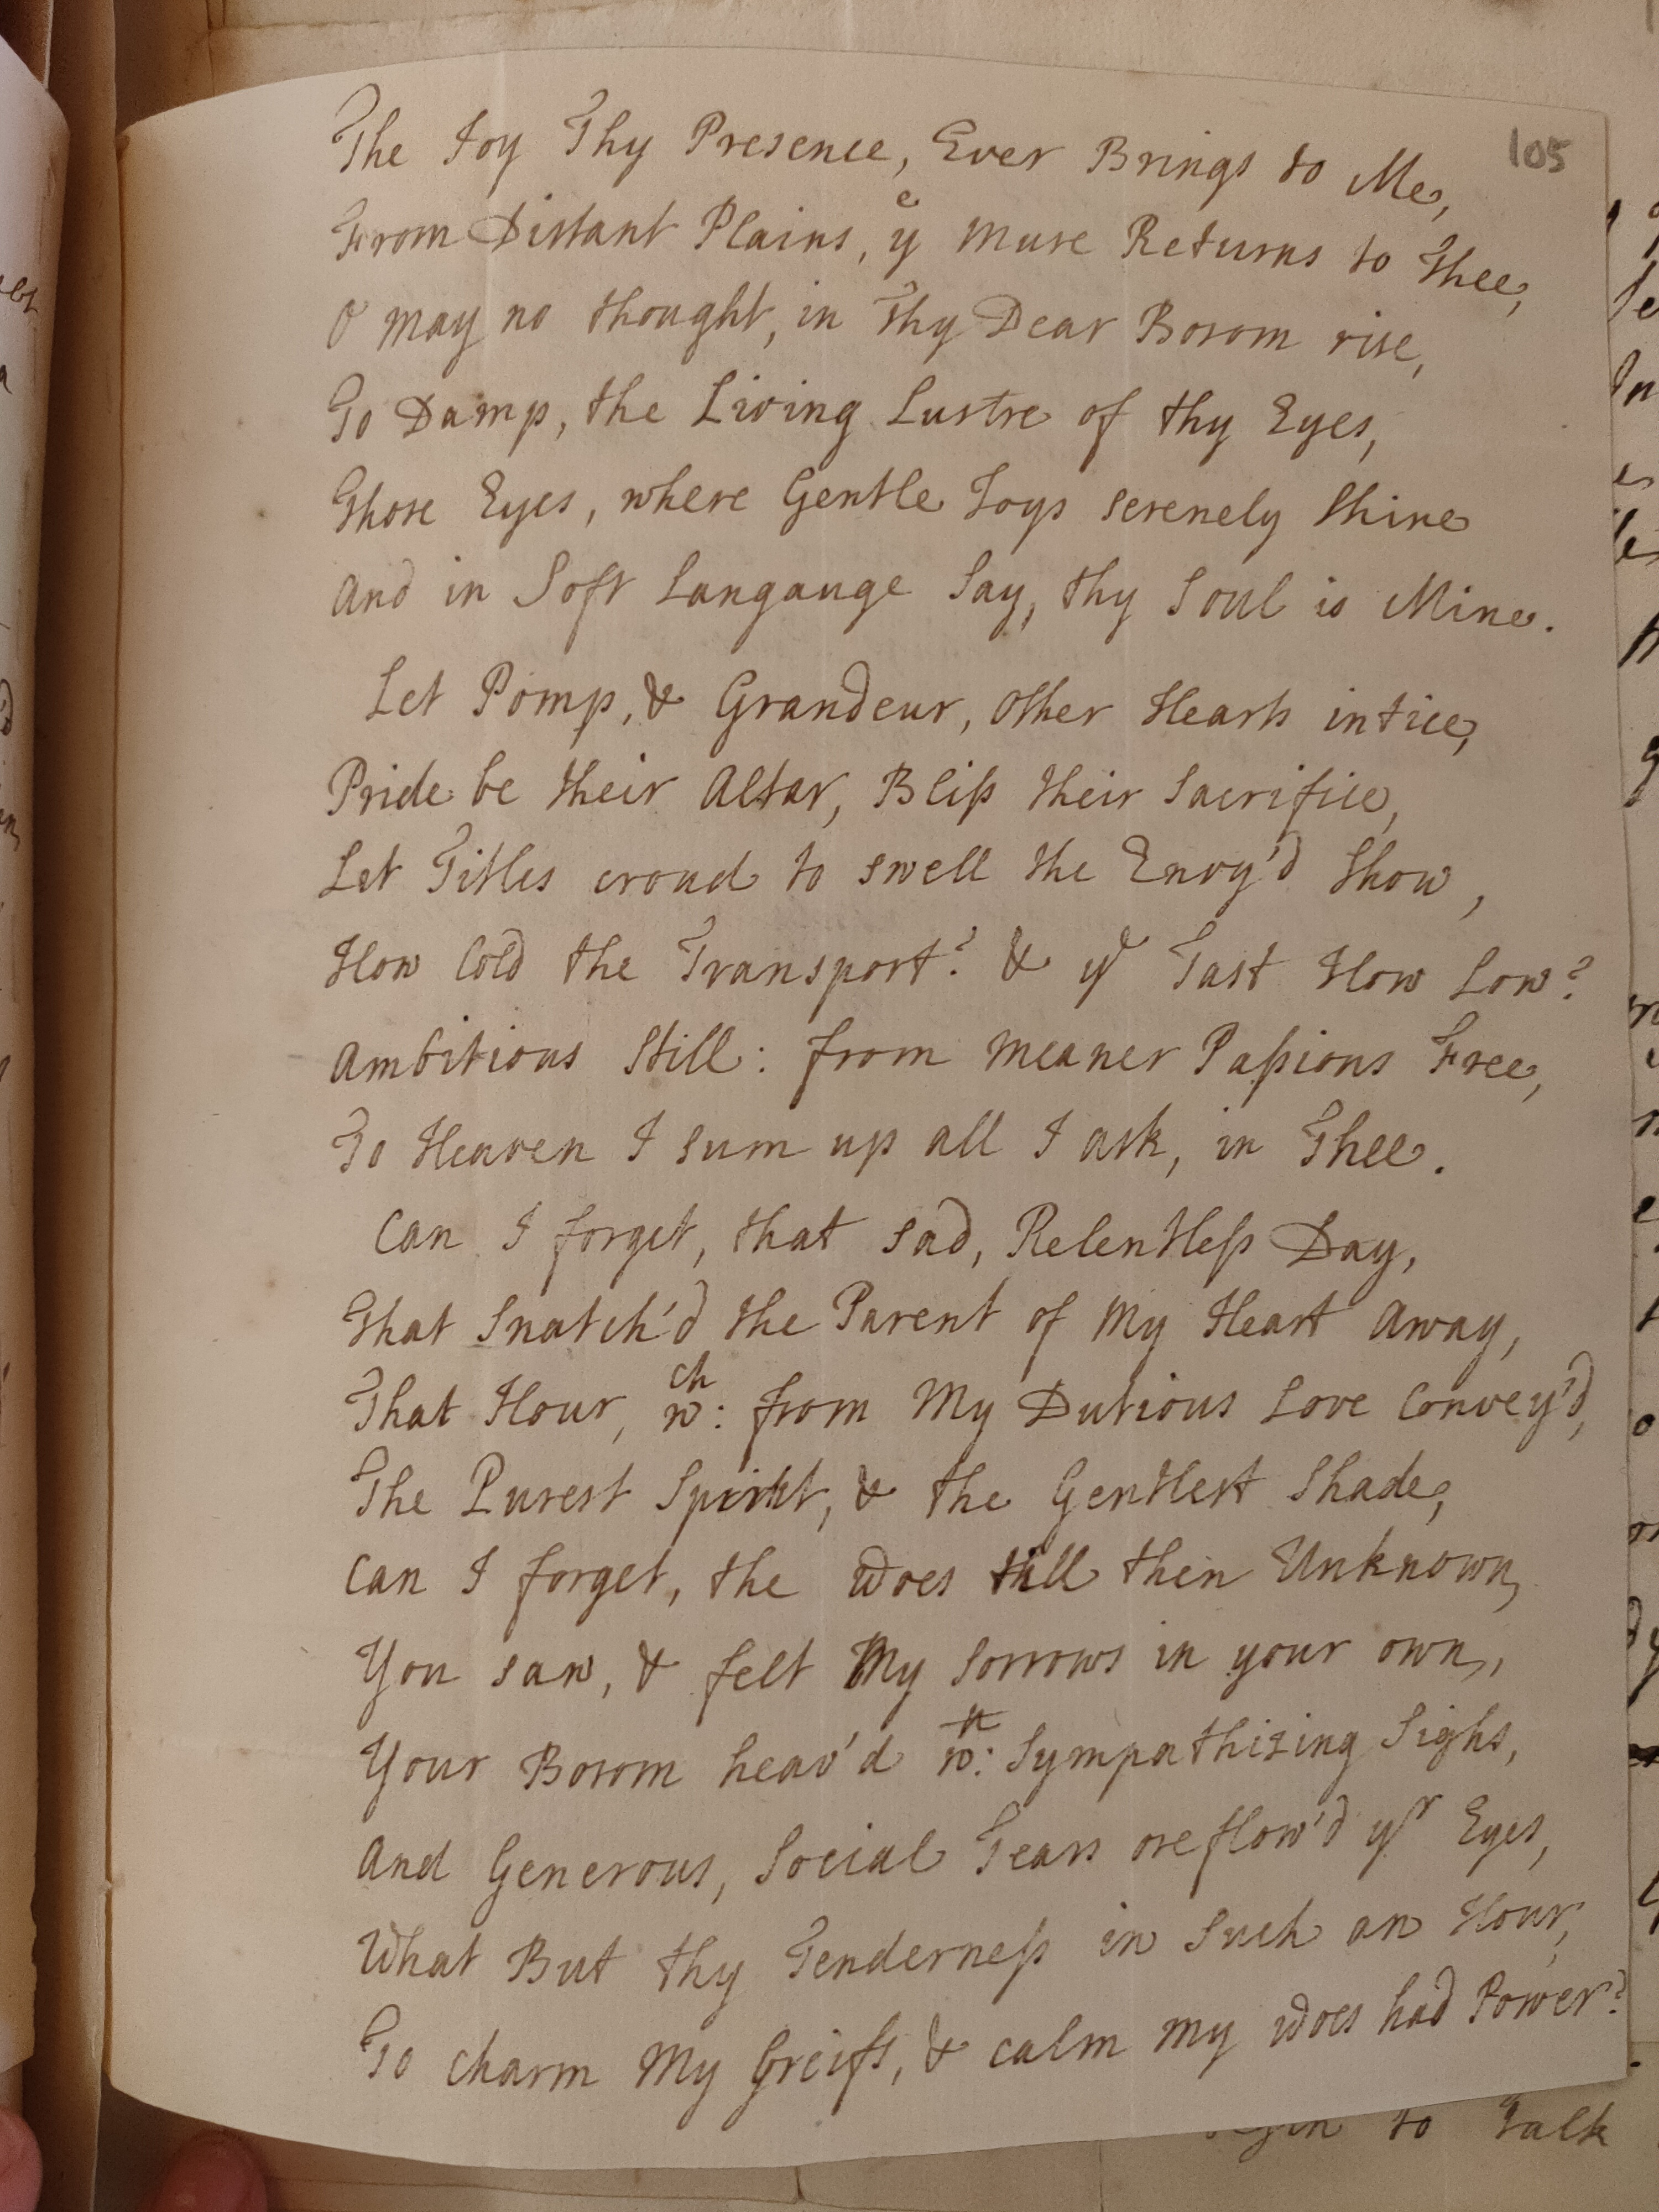 105
The Joy Thy Presence, Ever Brings to Me,
From Distant Plains, yᵉ Muse Returns to Thee,
O may no thought, in Thy Dear Bosom rise,
To Damp, the Living Lustre of thy Eyes,
Those Eyes, where Gentle Joys serenely Shine
And in Soft Langauge Say, thy Soul is Mine.
Let Pomp, & Grandeur, other Hearts intice,
Pride be their Altar, Bliſs their Sacrifice,
Let Titles croud to swell the Envy'd Show,
How Cold the Transport? & yᵉ Tast How Low?
Ambitious Still: from meaner Paſsions Free,
To Heaven I sum up all I ask, in Thee.
Can I forget, that sad, Relentleſs Day,
That Snatch'd the Parent of My Heart Away,
That Hour, wᶜʰ: from My Dutious Love Convey'd,
The Purest Spirit, & the Gentlest Shade,
Can I forget, the Woes till then Unknown,
You saw, & felt My Sorrows in your own,
Your Bosom heav'd wᵗʰ: Sympathizing Sighs,
And Generous, Social Tears oreflow'd yʳ Eyes,
What But thy Tenderneſs in Such an Hour,
To charm My Greifs, & calm my Woes had Power?
to Talk